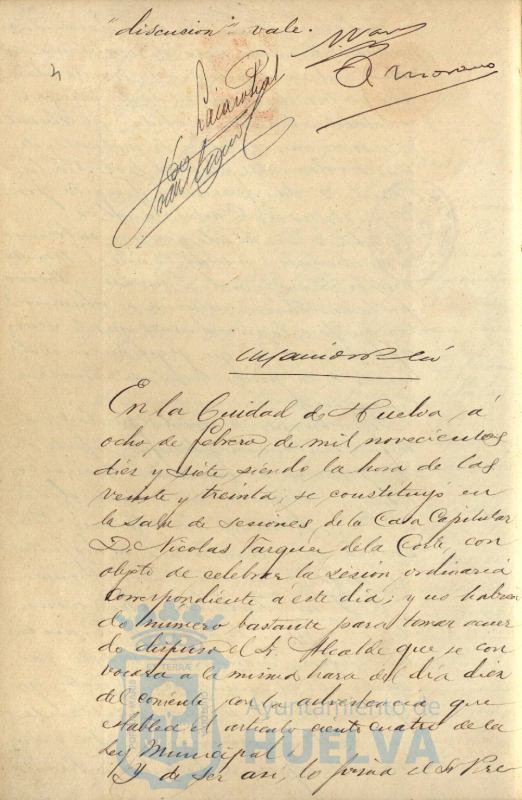 "discusion" vale.
A Moreno
En la Ciudad de Huelva á
ocho de febrero, de mil novecientos
diez y siete, siendo la hora de las
veinte y treinta, se constituyó en
la sala de sesiones de la Casa Capitular
D. Nicolas Vazquez de la Corte, con
objeto de celebrar la sesión ordinaria
correspondiente a este dia; y no habien
do numero bastante para tomar acuer
do dispuso el Sr. Alcalde que se con
vocara a la misma hora del dia diez
del corriente con la advertencia que
establece el articulo ciento cuatro de la
Ley Municipal
Y de ser asi, lo firma el Sr Pre
Ayuntamiento de
HUELVA